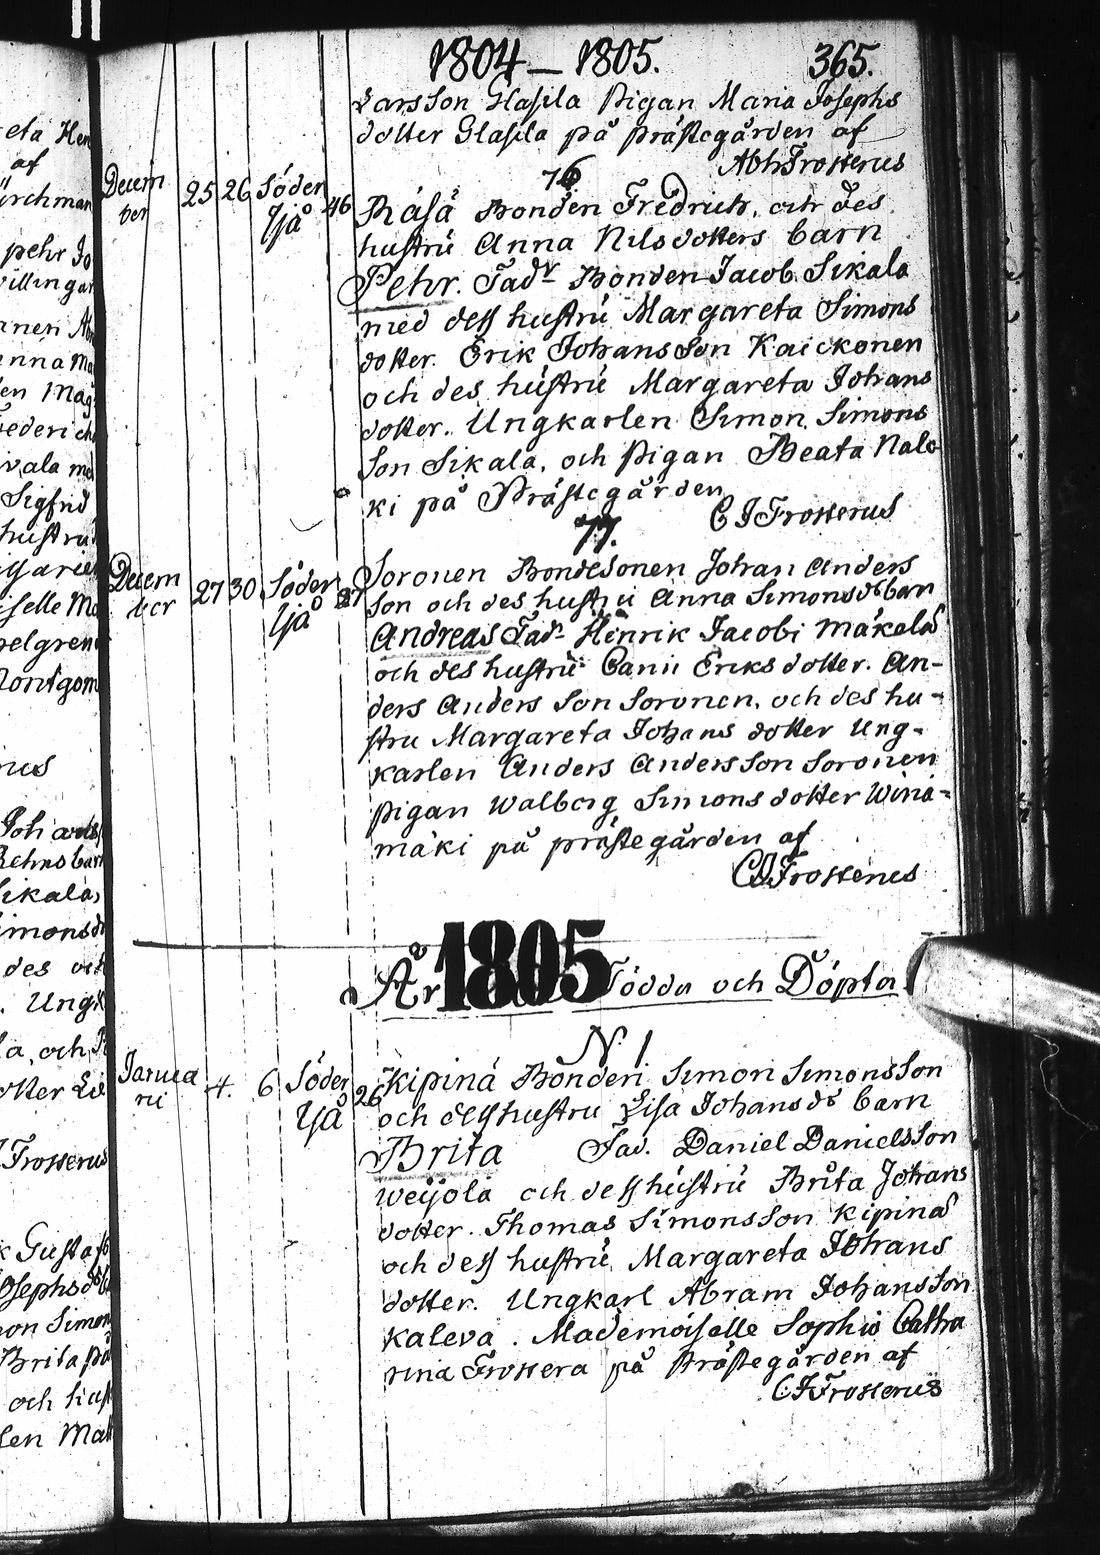 1804 – 1805. 365.
Larsson Glasila Pigan Maria Josephs
dotter Glasila på Prästegården af
AbhFrosterus
76
Decem
ber 25 26 Söder
Ijå 46
Råså Bonden Fredrich, och des
hustru Anna Nilsdotters barn
Pehr. Fadr Bonden Jacob Sikala
med dess hustru Margareta Simons
dotter. Erik Johansson Kaickonen
och des hustru Margareta Johans
dotter. Ungkarlen Simon Simons
Son Sikala, och Pigan Beata Nalc
ki på Prästegården
CJFrosterus
77.
Decem
ber 27 30 Söder
Ijå 27
Soronen Bondesonen Johan Anders
son och des hustru Anna Simonsds barn
Andreas Fadr Henrik Jacobi Mäkelä
och des hustru Carin Eriksdotter. An-
ders Anders Son Soronen, och des hu-
stru Margareta Johans dotter Ung-
karlen Anders Andersson Soronen
Pigan Walborg Simonsdotter Wina-
mäki på prästegården af
CJFrosterus
År 1805 Födda och Döpta
N 1
Janua
rii 4. 6 Söder
Ijå 26
Kipinä Bonden Simon Simonsson
och dess hustru Lisa Johansds barn
Brita Fad. Daniel Danielsson
Weijola och dess hustru Brita Johans
dotter. Thomas Simonsson Kipinä
och dess hustru Margareta Johans
dotter. Ungkarl Abram Johansson
Kaleva. Mademoiselle Sophia Catha
rina Frostera på Prästegården af
CJFrosterus